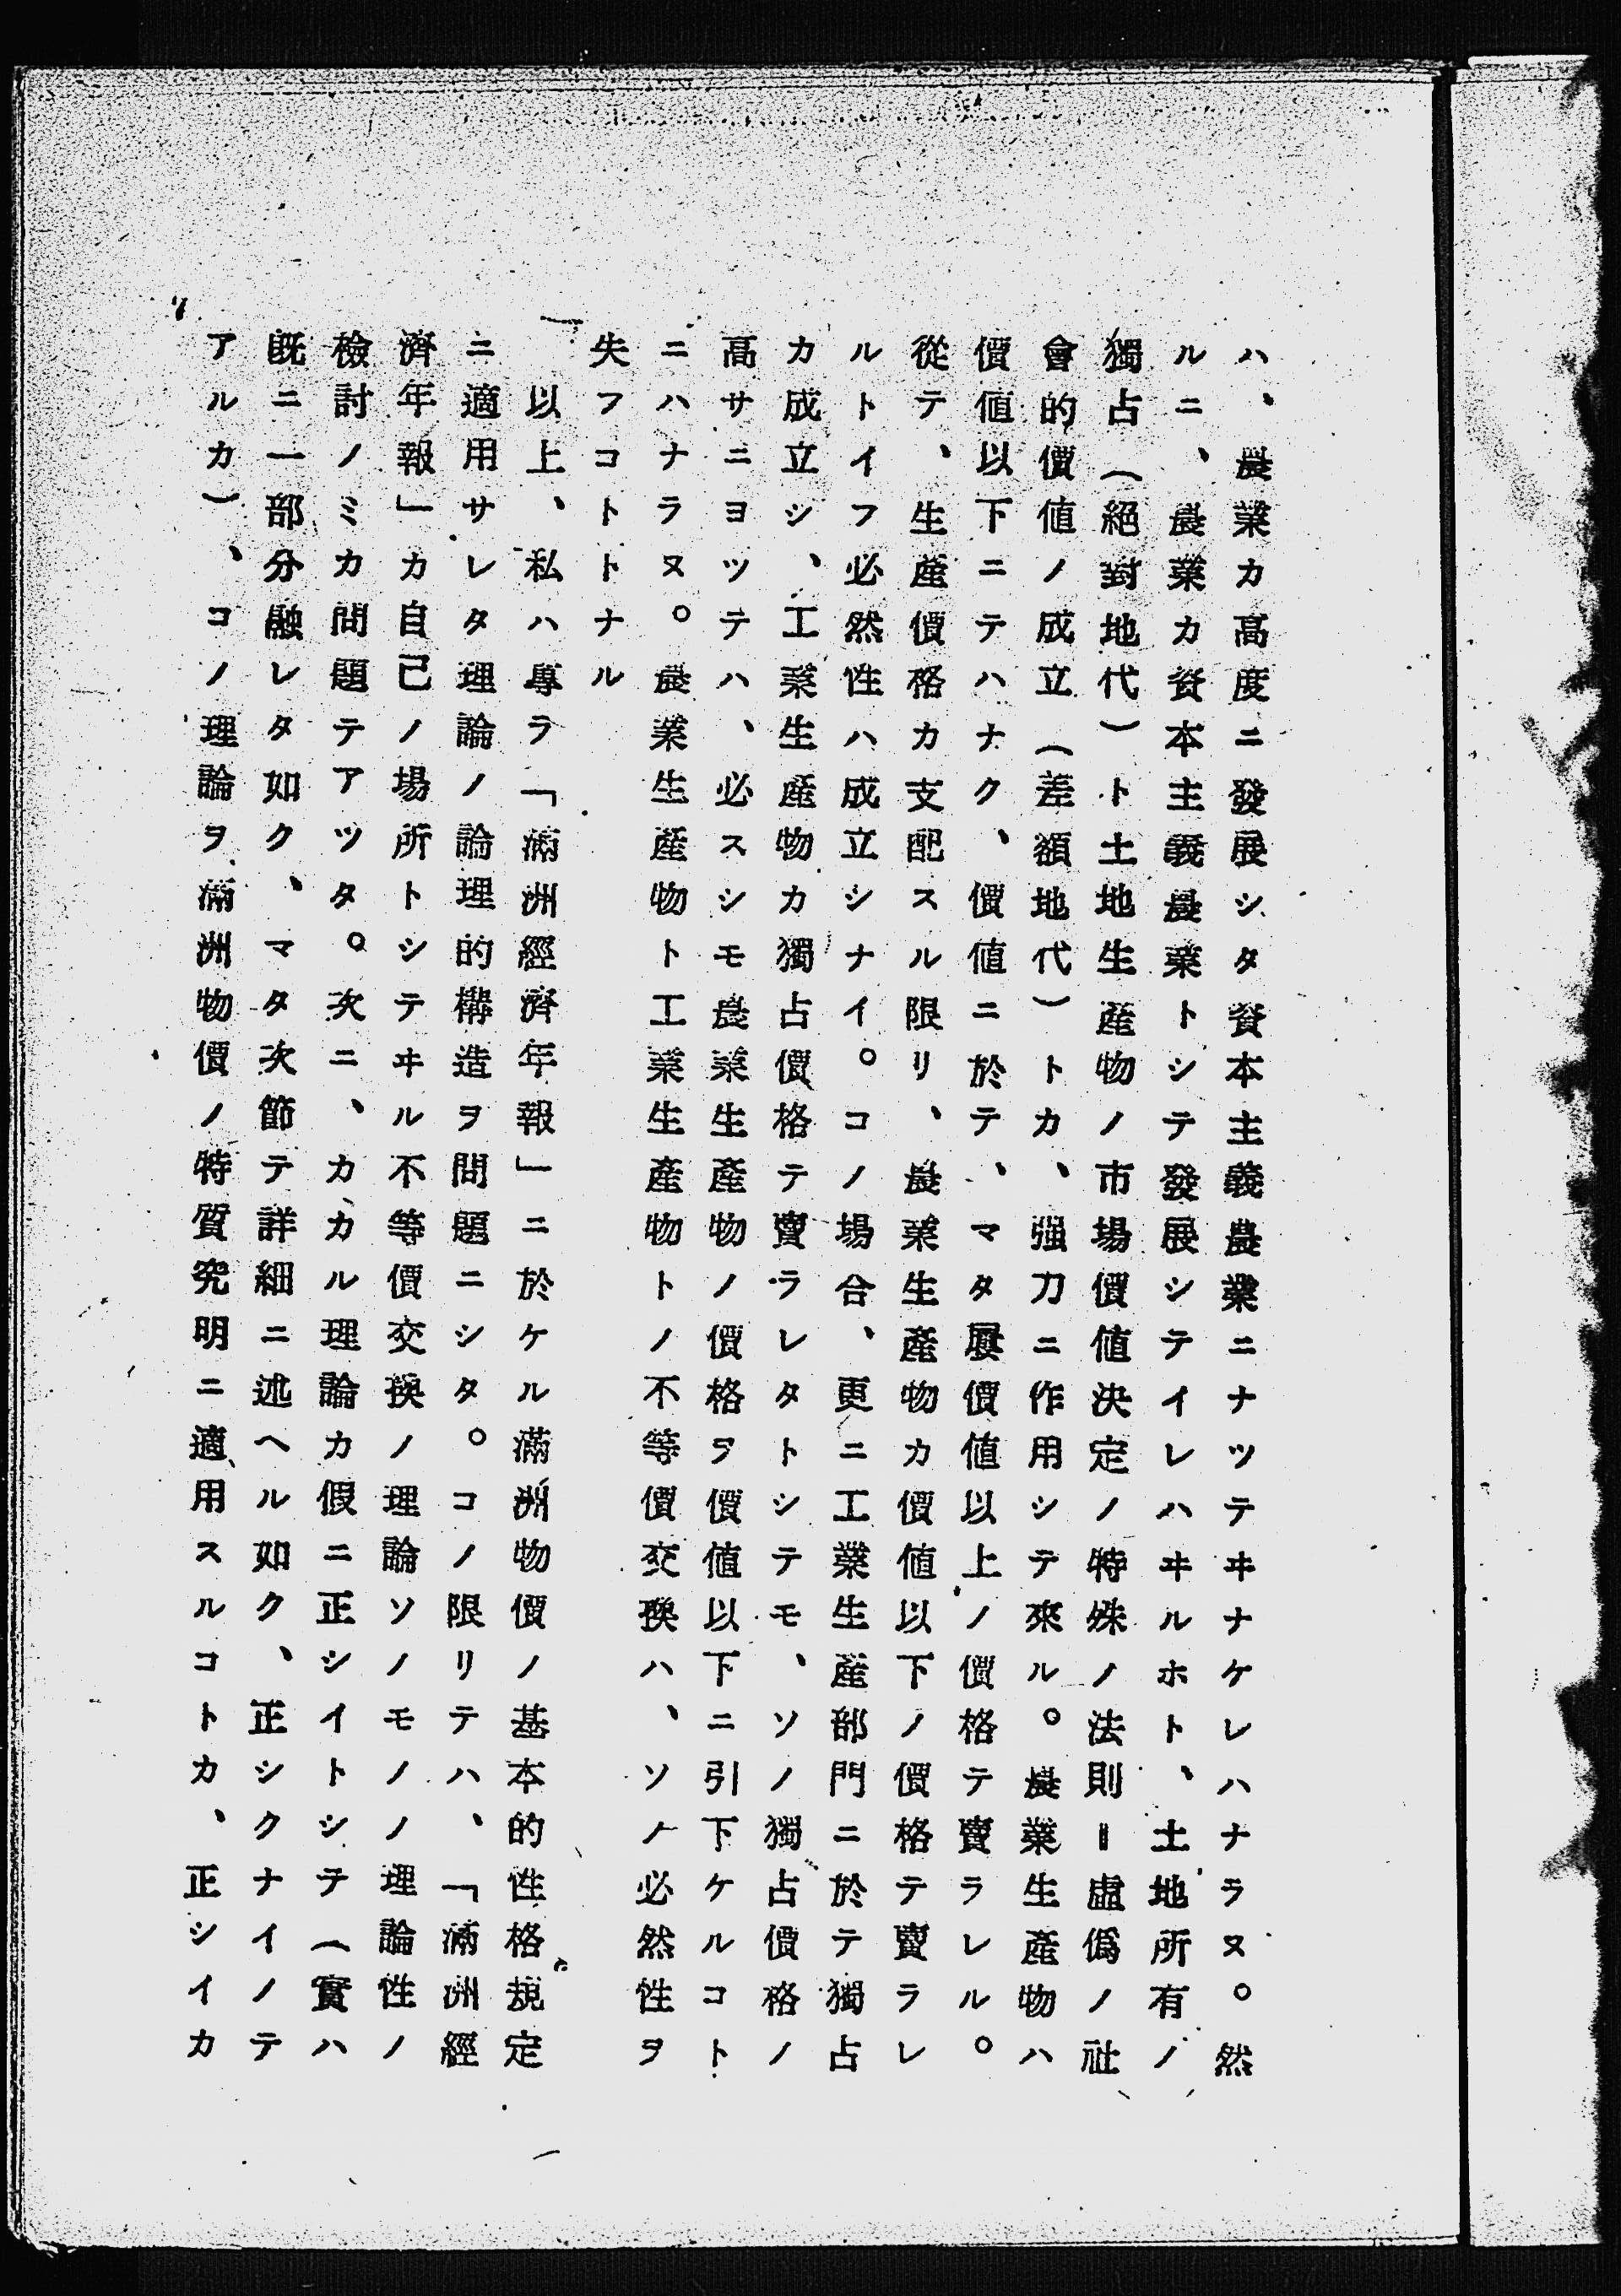 ハ、農業カ高度ニ發展シタ資本主義農業ニナツテヰナケレハナラヌ。然
ルニ、農業カ資本主義農業トシテ發展シテイレハヰルホト、土地所有ノ
獨占（絕對地代）ト土地生産物ノ市場價値決定ノ特殊ノ法則＝虛僞ノ社
會的價値ノ成立（差額地代）トカ、强力ニ作用シテ來ル。農業生産物ハ
價値以下ニテハナク、價値ニ於テ、マタ屢價値以上ノ價格テ賣ラレル。
從テ、生産價格カ支配スル限リ、農業生産物カ價値以下ノ價格テ賣ラレ
ルトイフ必然性ハ成立シナイ。コノ場合、更ニ工業生産部門ニ於テ獨占
カ成立シ、工業生産物カ獨占價格テ賣ラレタトシテモ、ソノ獨占價格ノ
高サニヨツテハ、必スシモ農業生産物ノ價格ヲ價値以下ニ引下ケルコト
ニハナラヌ。農業生産物ト工業生産物トノ不等價交換ハ、ソノ必然性ヲ
失フコトトナル
以上、私ハ專ラ「滿洲經濟年報」ニ於ケル滿洲物價ノ基本的性格規定
ニ適用サレタ理論ノ論理的構造ヲ問題ニシタ。コノ限リテハ、「滿洲經
濟年報」カ自己ノ場所トシテヰル不等價交換ノ理論ソノモノノ理論性ノ
檢討ノミカ問題テアツタ。次ニ、カカル理論カ假ニ正シイトシテ（實ハ
既ニ一部分融レタ如ク、マタ次節テ詳細ニ述ヘル如ク、正シクナイノテ
アルカ）、コノ理論ヲ滿洲物價ノ特質究明ニ適用スルコトカ、正シイカ